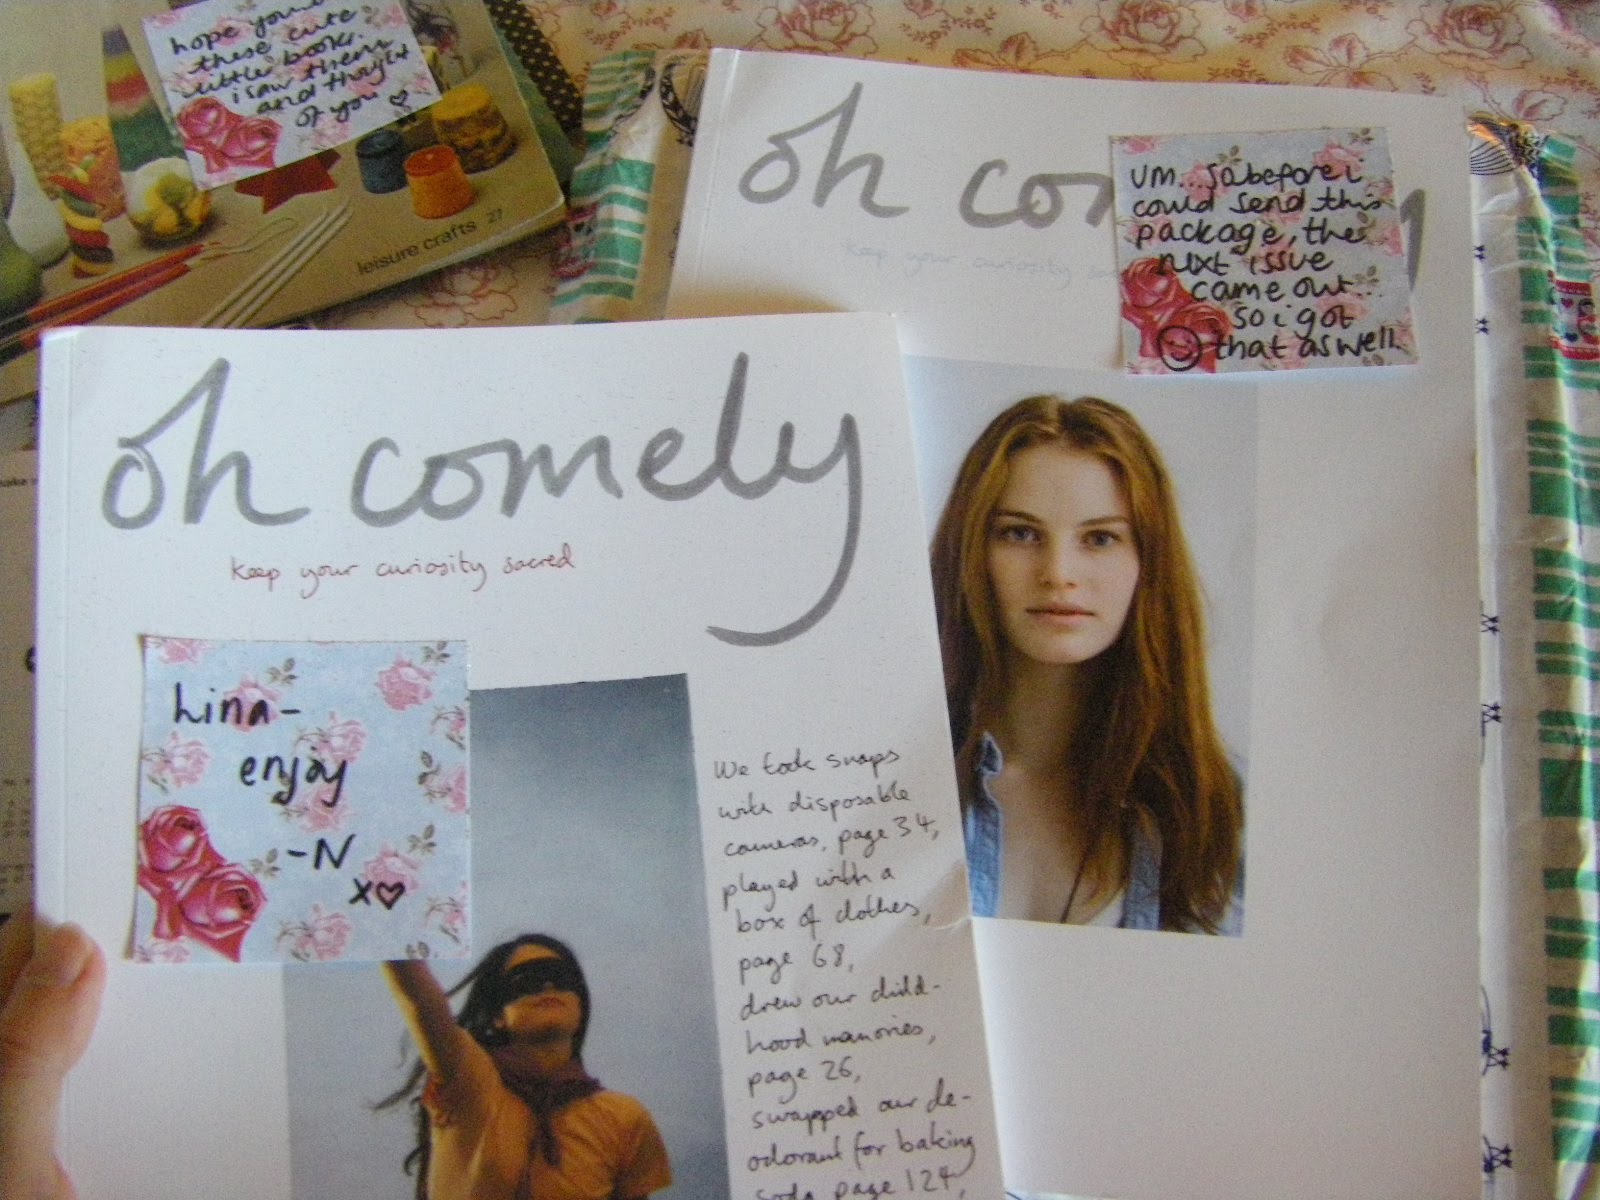 hope you
these cute
little books.
i saw them
and thought
of you
leisure crafts 27
oh comely
keep your curiosity
UM... so before i
could send this
package, the
next issue
came out...
so i got
that as well.
oh comely
keep your curiosity sacred
Lina-
enjoy
-N
x
We took snaps
with disposable
cameras, page 34,
played with a
box of clothes,
page 68,
drew our child-
hood memories,
page 26,
swapped our de-
odorant for baking
soda, page 124,